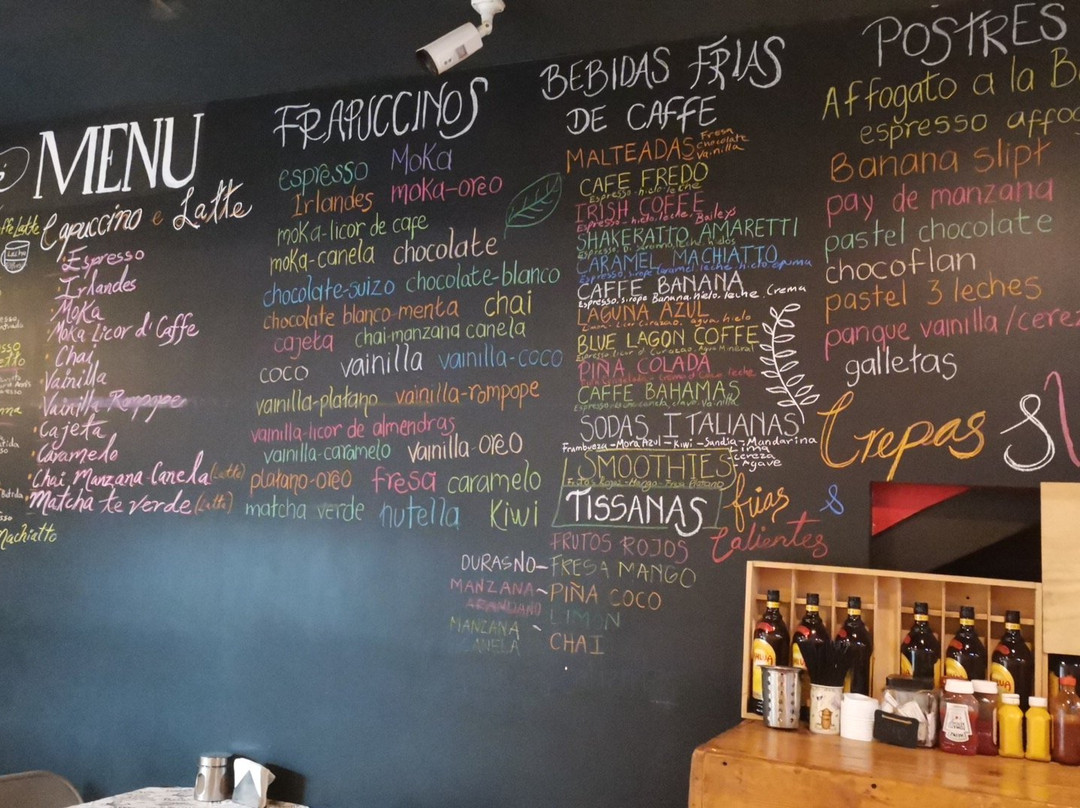 MENU
Capuccino e Latte
Espresso
Irlandes
Moka
Moka Licor d' Caffe
Chai
Vainilla
Vainilla Rompope
Cajeta
Caramelo
Chai Manzana Canela (Latte)
Matcha te verde (Latte)
Machiatto
FRAPUCCINOS
espresso Moka
Irlandes moka-oreo
moka-licor de cafe
moka-canela chocolate
chocolate-suizo chocolate-blanco
chocolate blanco menta chai
cajeta chai-manzana canela
coco vainilla vainilla-coco
vainilla-platano vainilla-rompope
vainilla-licor de almendras
vainilla-caramelo vainilla-oreo
platano-oreo fresa caramelo
matcha verde nutella Kiwi
BEBIDAS FRIAS
DE CAFFE
MALTEADAS Fresa
chocolate
Vainilla
CAFE FREDO
Espresso-hielo-leche
IRISH COFFE
Espresso, hielo, leche, Baileys
SHAKERATTO AMARETTI
CARAMEL MACHIATTO
Espresso, sirope Caramel leche, hielo espuma
CAFFE BANANA
Espresso, sirope Banana, hielo, leche, Crema
LAGUNA AZUL
BLUE LAGON COFFE
PIÑA COLADA
CAFFE BAHAMAS
SODAS ITALIANAS
Frambueza-Mora Azul-Kiwi-Sandia-Mandarina
-Lima
-Cereza
-Agave
SMOOTHIES
Frutos Rojos-Mango-Fresa Platano
TISSANAS frias &
Calientes
FRUTOS ROJOS
DURASNO-FRESA MANGO
MANZANA - PIÑA COCO
ARANDANO
LIMON
MANZANA
CANELA
CHAI
POSTRES
Affogato a la
espresso
Banana slipt
pay de manzana
pastel chocolate
chocoflan
pastel 3 leches
panque vainilla/
galletas
Crepas &